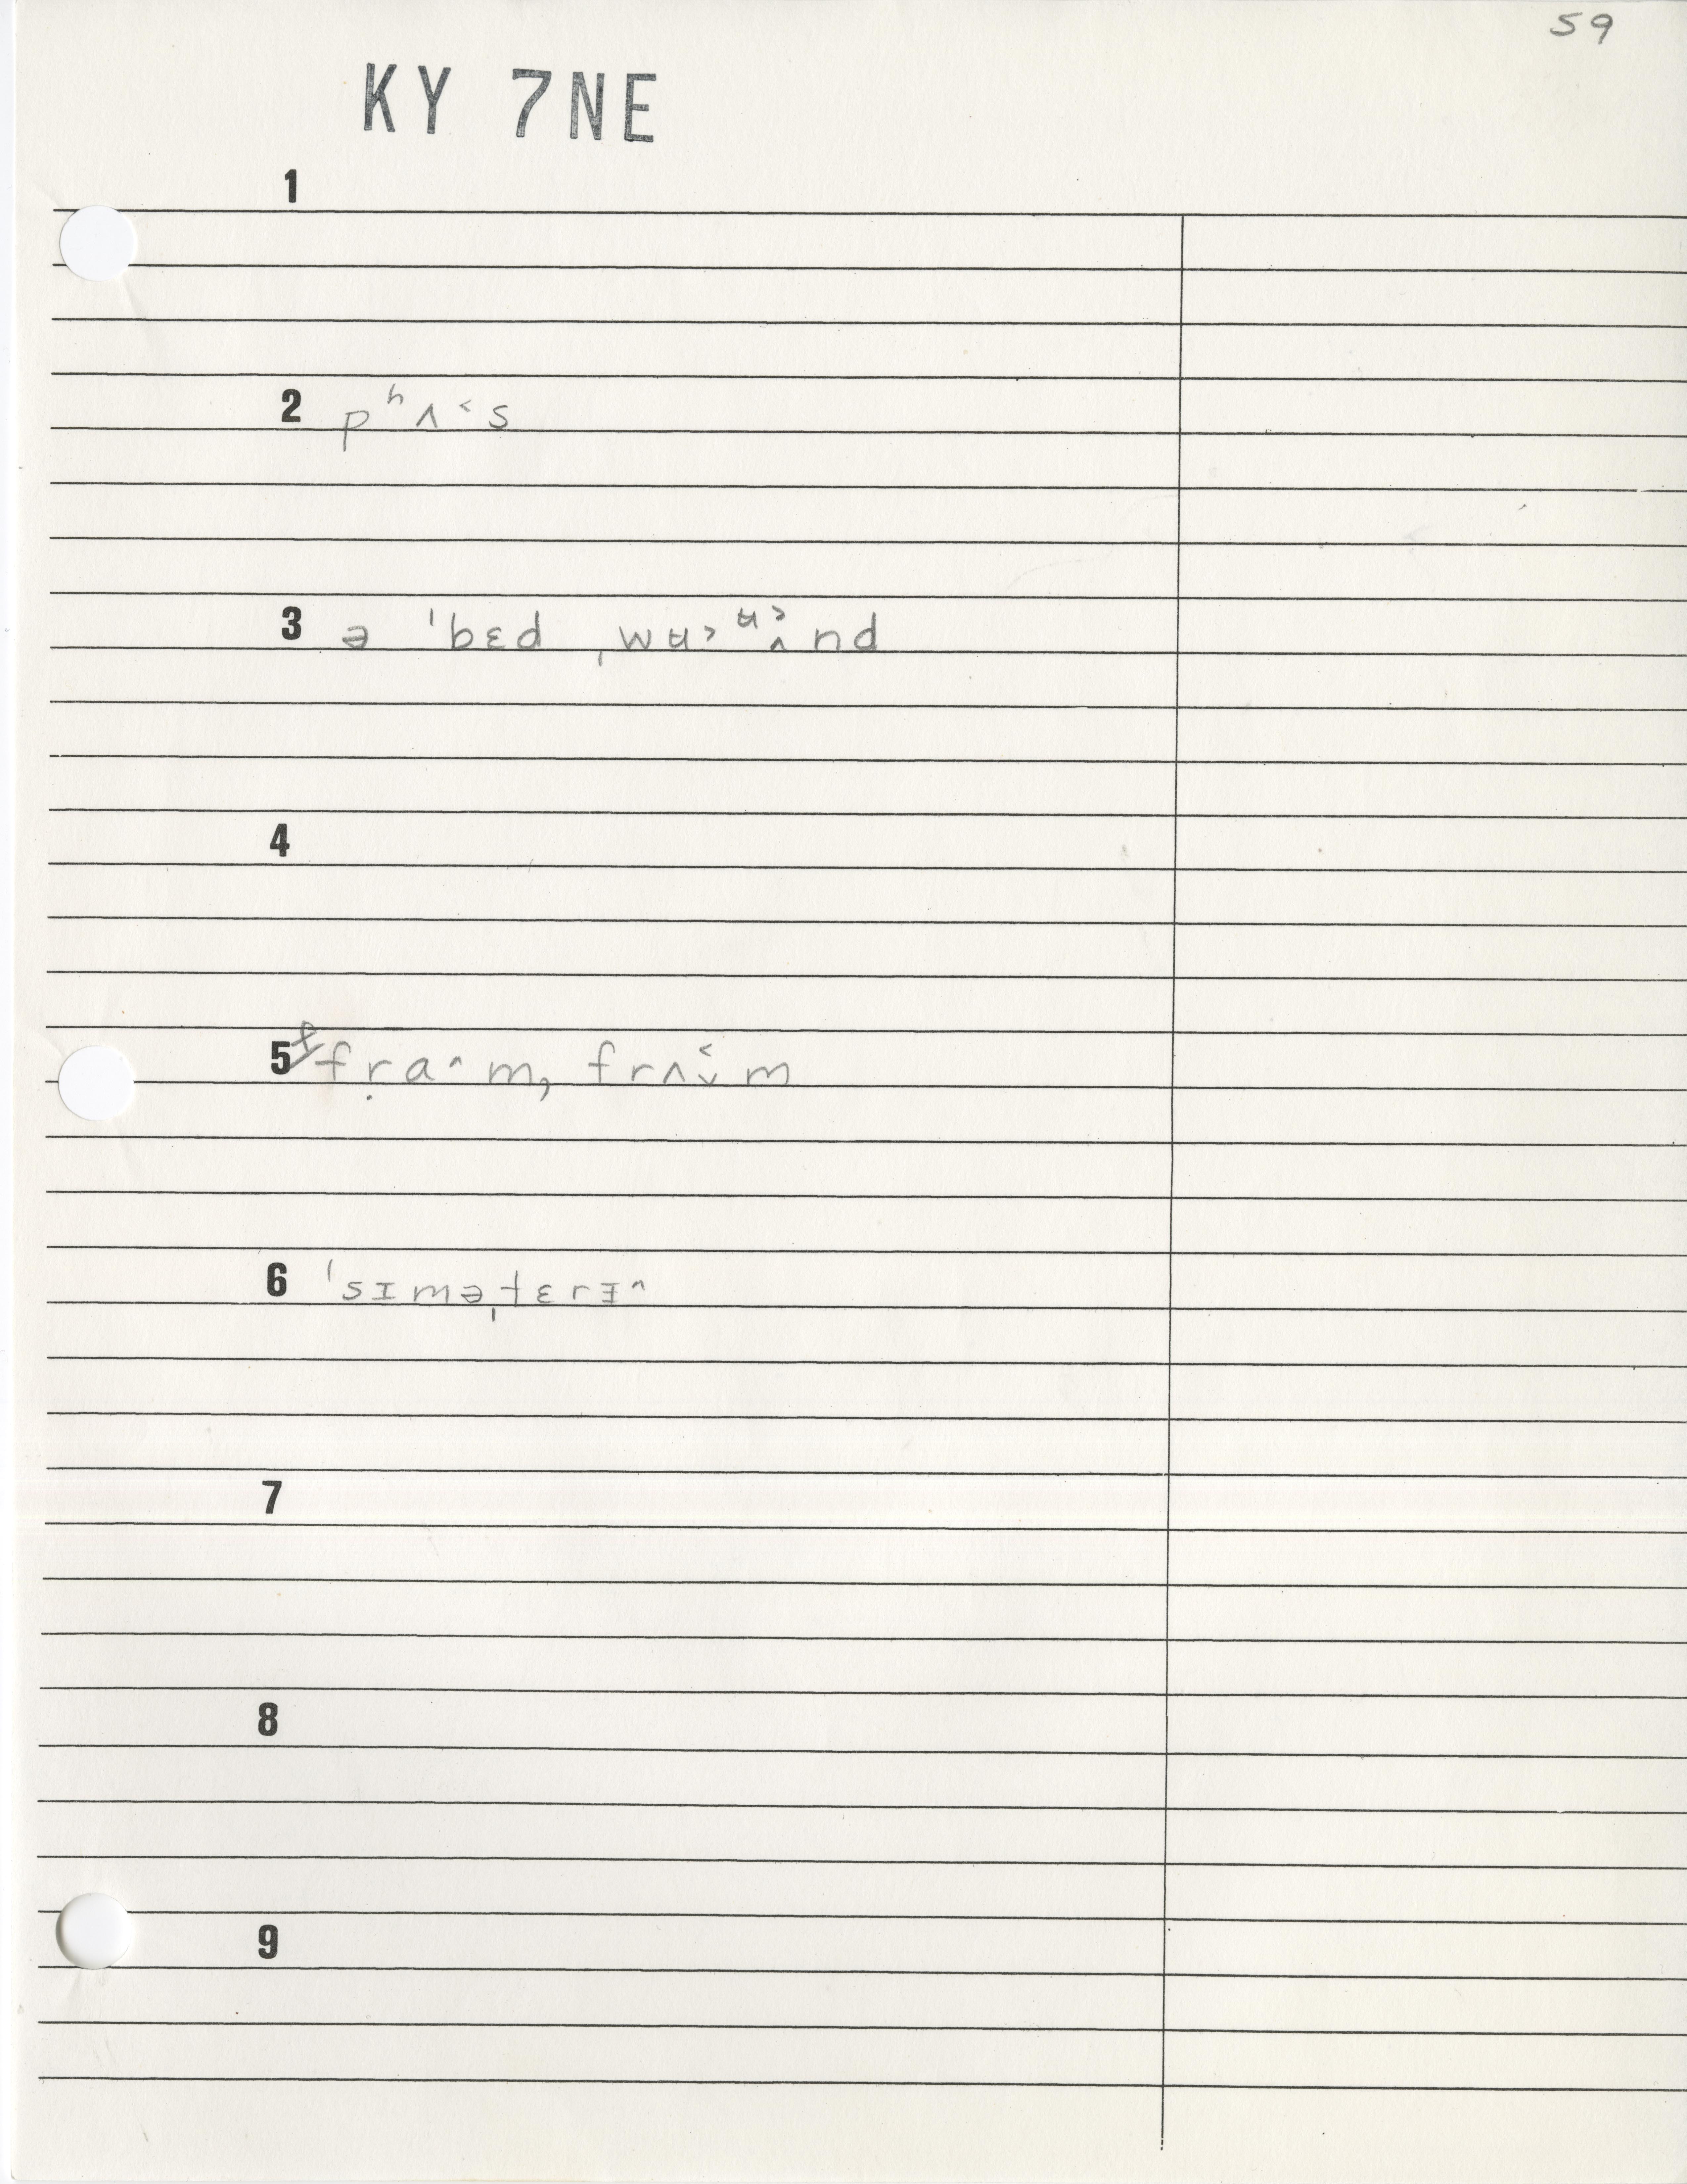 59
KY 7NE
1
2 pʰʌ˂s
3 ə ˈbɛd ˌwʉ˃ʉ̂˃nd
4
5 fṛa˄m, frʌ˂̬m
6 ˈsɪməˌtɛrɪ˄
7
8
9